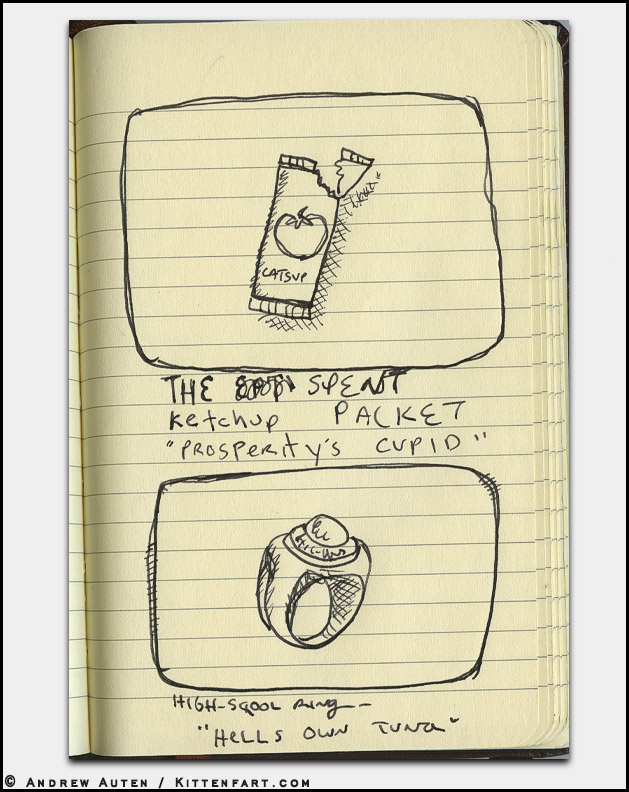 CATSUP
THE SPENT
ketchup PACKET
"PROSPERITY'S CUPID"
HIGH-SQOOL RING-
"HELLS OWN TUNA"
© ANDREW AUTEN / KITTENFART.COM